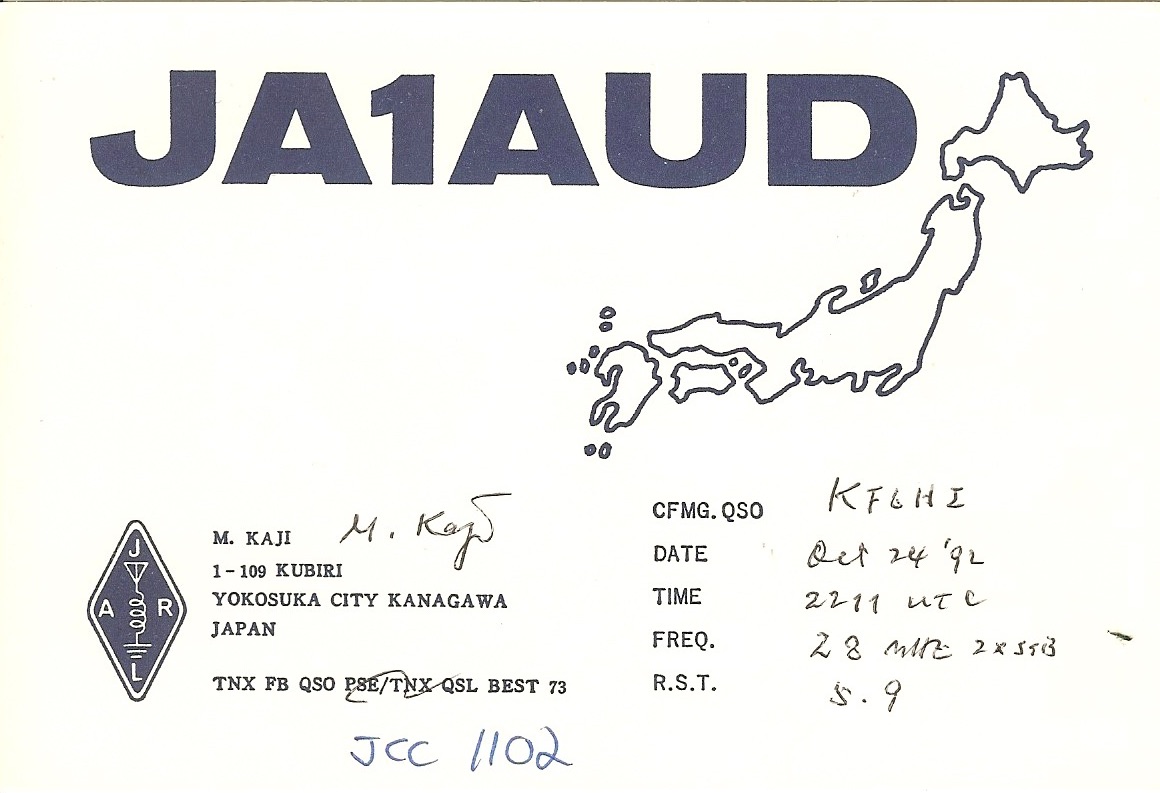 JA1AUD
J
A R
L
M. KAJI M. Kaji
1-109 KUBIRI
YOKOSUKA CITY KANAGAWA
JAPAN
TNX FB QSO PSE/TNX QSL BEST 73
JCC 1102
CFMG. QSO KF6HI
DATE Oct 24 '92
TIME 2211 UTC
FREQ. 28 MHz 2xSSB
R.S.T. 5.9